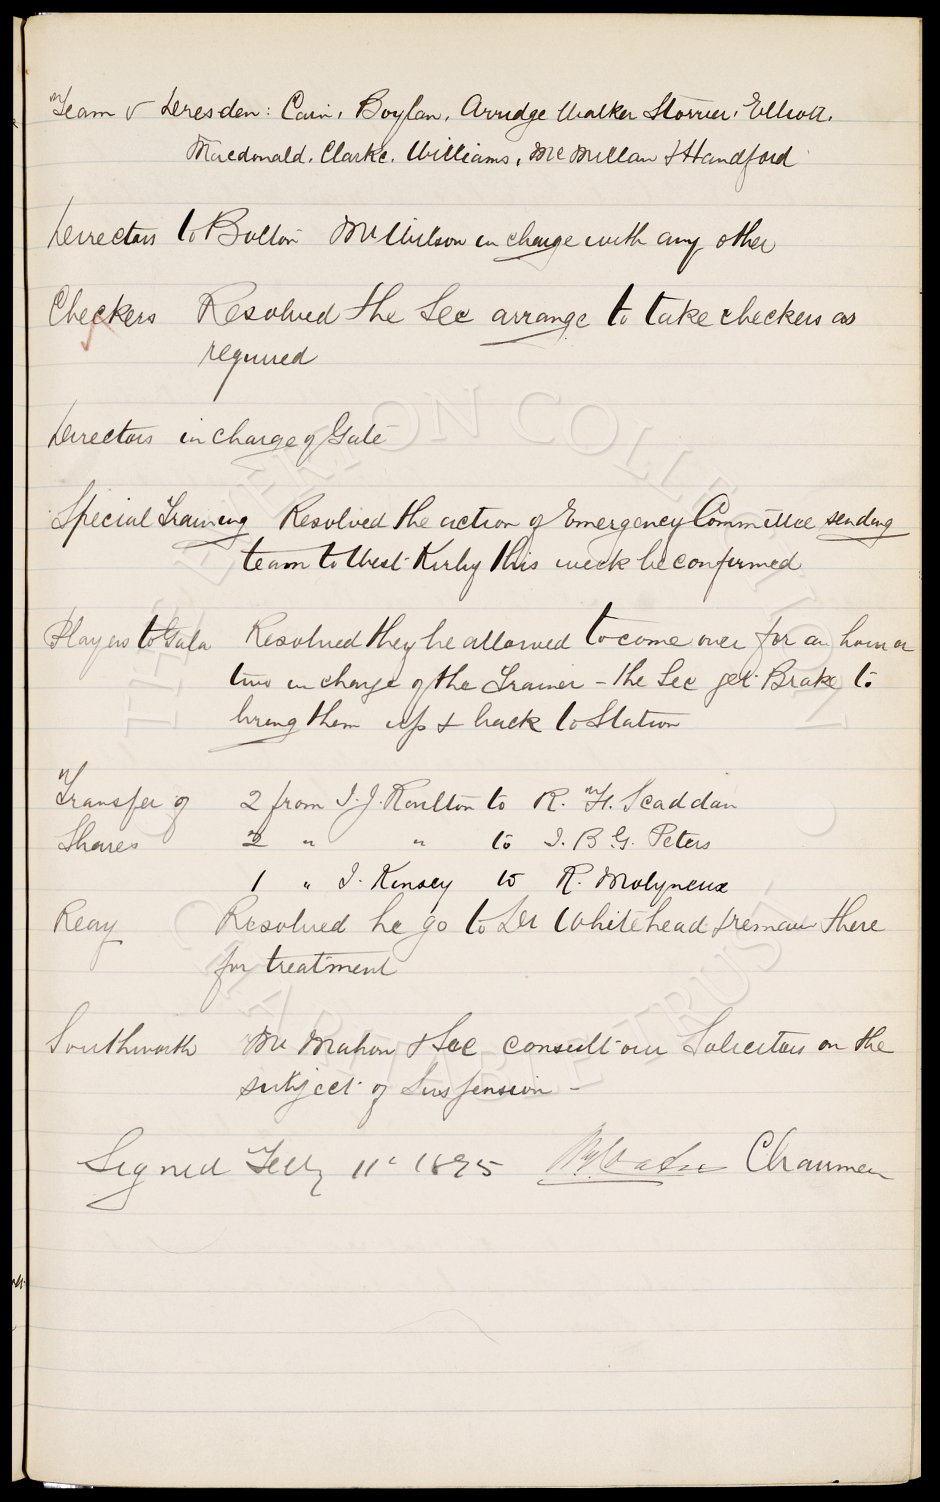 Team v Dresden: Cain, Boylan, Arridge Walker Storrier, Elliott,
Macdonald, Clarke, Williams, McMillan & Handford
Directors to Bolton Mr Wilson in charge with any other
Checkers Resolved the Sec arrange to take checkers as
required
Directors in charge of Gate
Special Training Resolved the action of Emergency Committee sending
team to West Kirby this week be confirmed
Players to Gala Resolved they be allowed to come over for an hour or
two in charge of the Trainer - the Sec get Brake to
bring them up & back to Station
Transfer of 2 from J. J. Roulton to R. H. Scaddan
Shares 2 " " to J. B. G. Peters
1 " J. Kinsey to R. Molyneux
Reay Resolved he go to Dr Whitehead & remain there
for treatment
Southworth Mr Mahon & Sec consult our Solicitors on the
subject of Suspension -
Signed Feby 11th 1895 Chairman
THE EVERTON COLLECTION
CHARITABLE TRUST